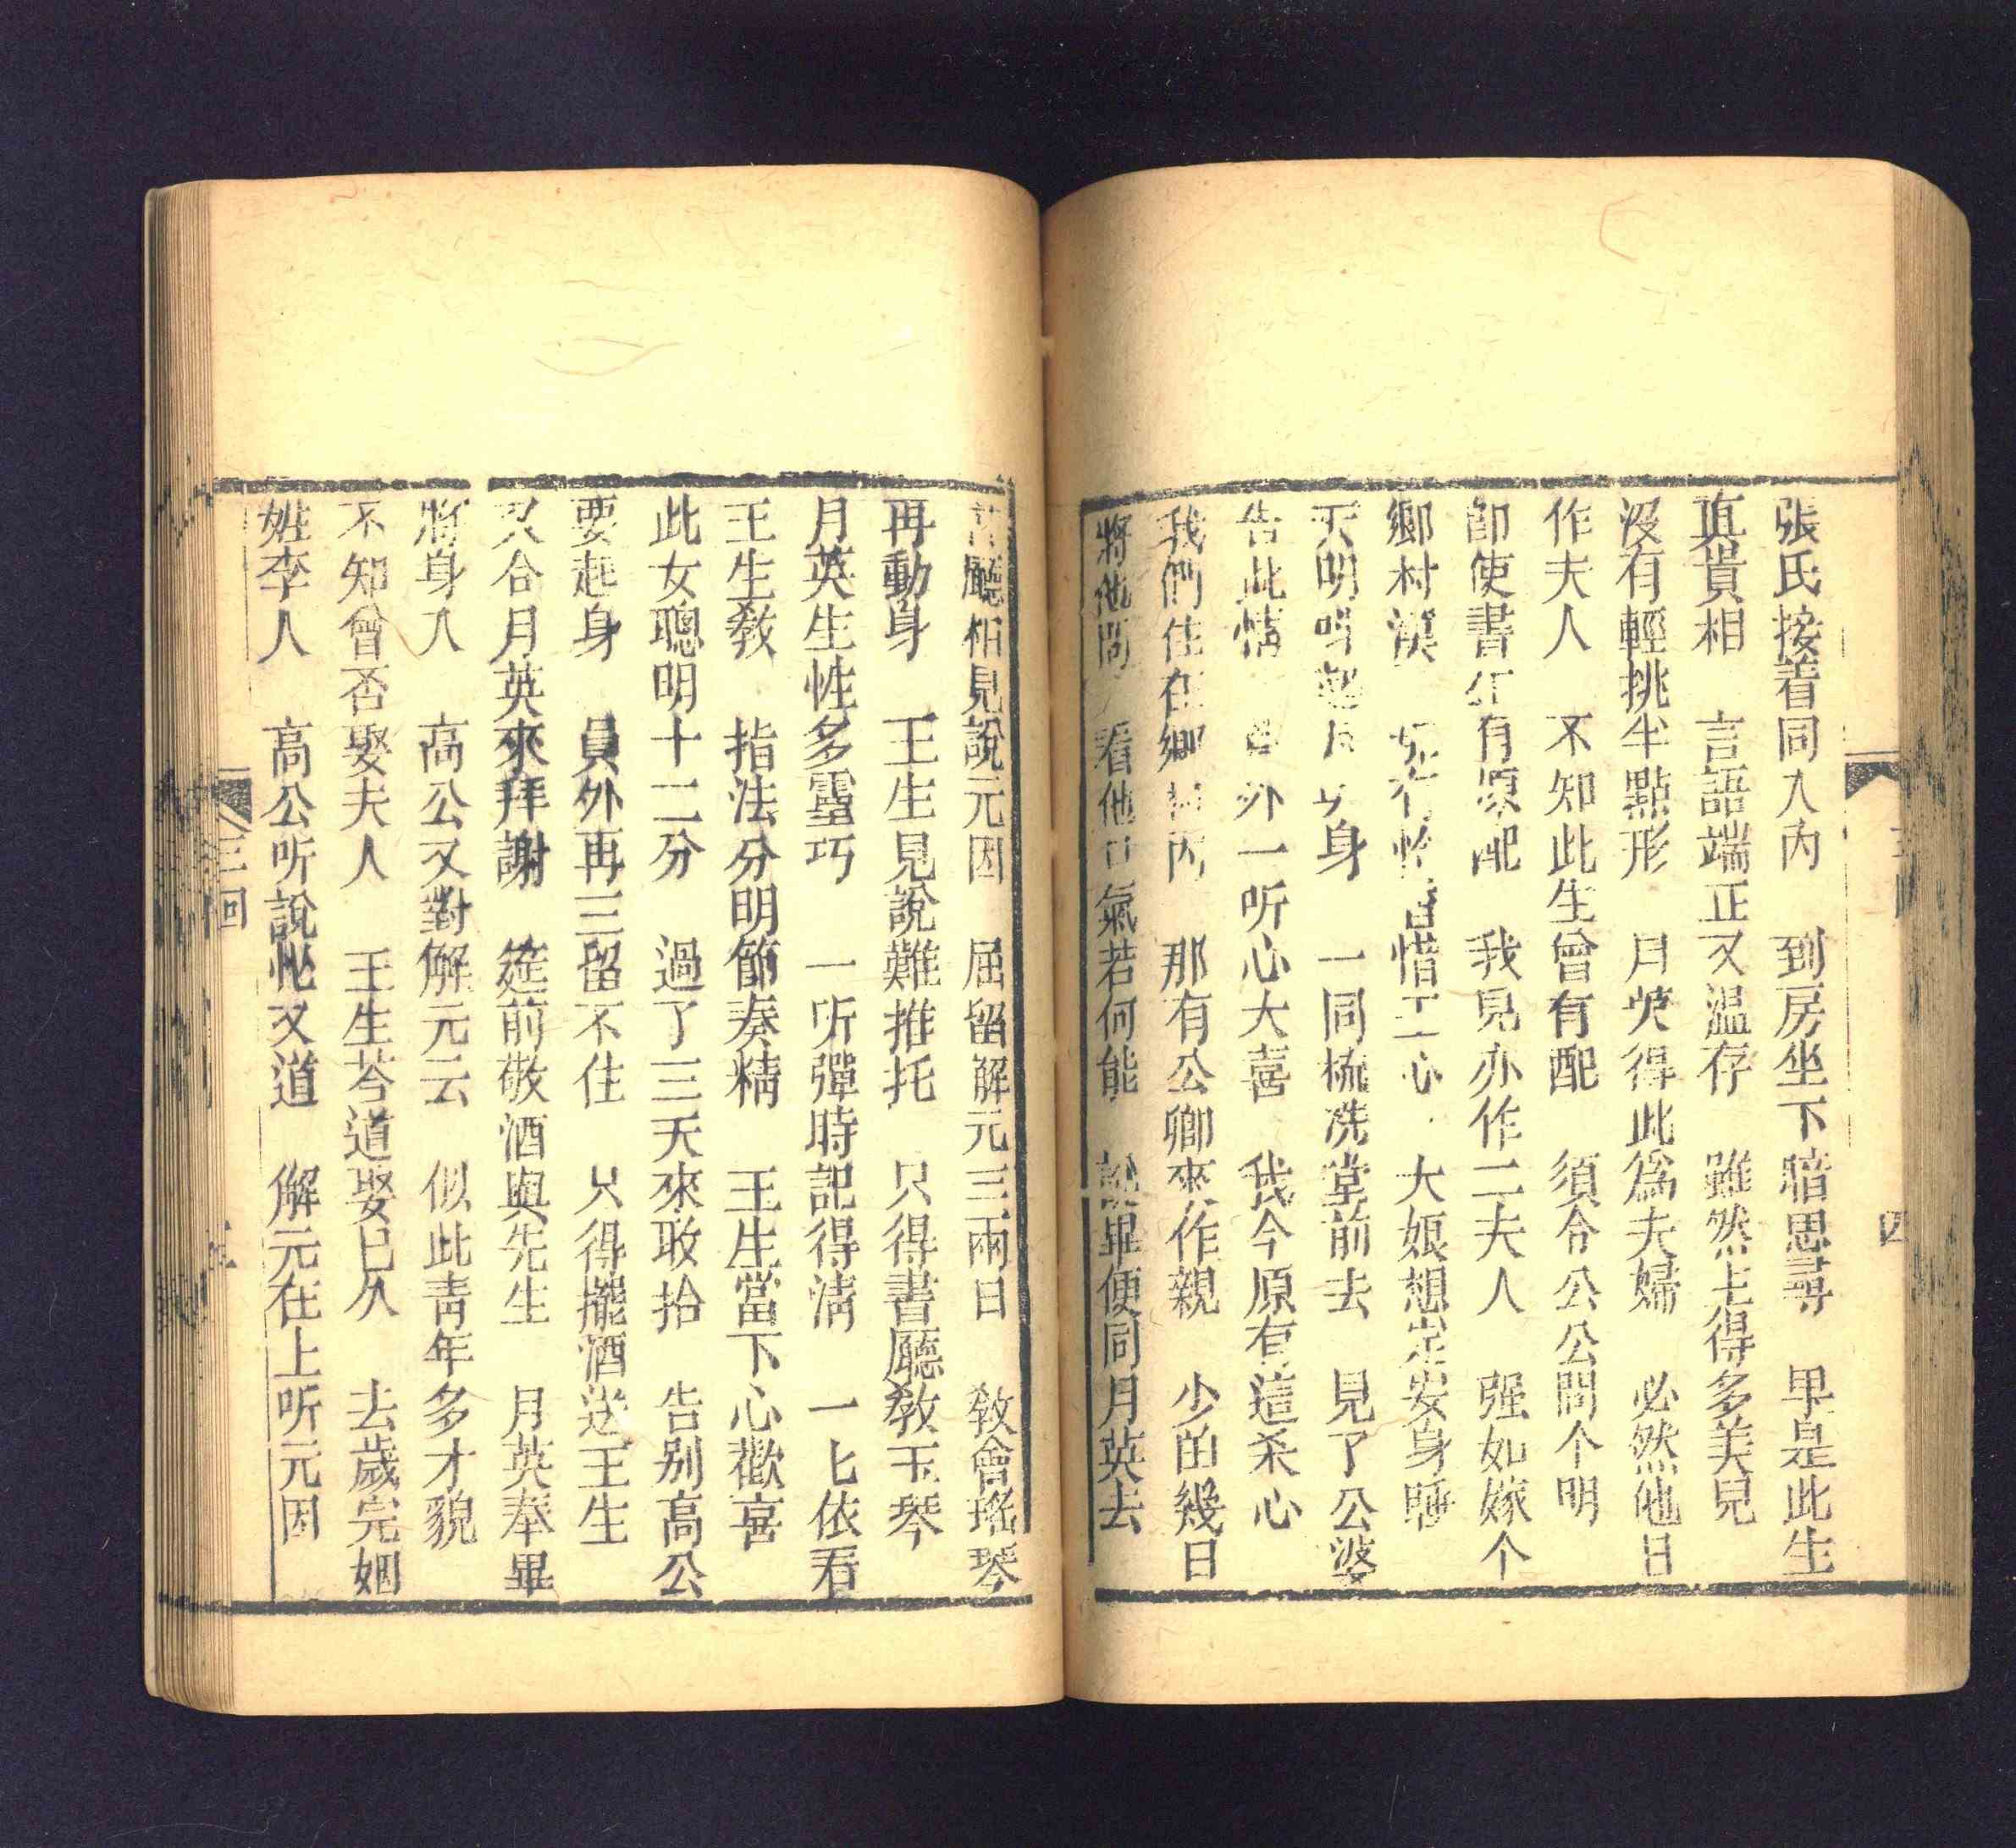 張氏接着同入內 到房坐下暗思尋 早是此生
真貴相 言語端正又溫存 雖然上得多美見
沒有輕挑半點形 月英得此為夫婦 必然他日
作夫人 不知此生曾有配 須令公公問个明
即使書 有原配 我見亦作二夫人 强如嫁个
鄉村漢 惜 心 大娘想定安身睡
天明 身 一同梳洗堂前去 見了公婆
告此情 外一听心大喜 我今原有這条心
我們住在鄉 內 那有公卿來作親 少的幾日
將他問 看他口氣若何能 說畢便同月英去
廳相見說元因 屈留解元三兩日 教會瑤琴
再動身 王生見說難推托 只得書廳教玉琴
月英生性多靈巧 一听彈時記得清 一匕依看
王生教 指法分明節奏精 王生當下心歡喜
此女聰明十二分 過了三天來收拾 告别高公
要起身 員外再三留不住 只得擺酒送王生
又令月英來拜謝 筵前敬酒與先生 月英奉畢
將身入 高公又對解元云 似此青年多才貌
不知曾否娶夫人 王生荅道娶已久 去歲完姻
姓李人 高公听說忙又道 解元在上听元因
三回
四